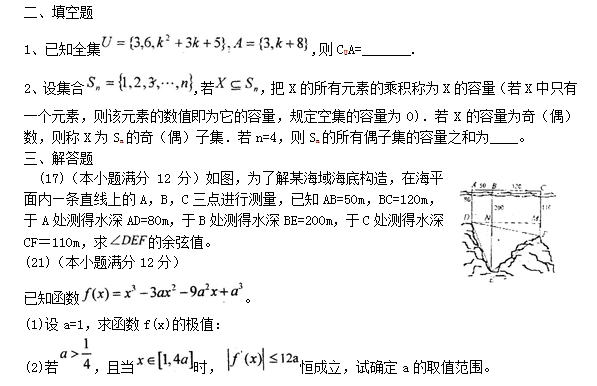 二、填空题
1、已知全集U = {3,6,k² + 3k + 5}, A = {3,k + 8},则 CᵤA=_______.
2、设集合 Sₙ = {1,2,3,⋯,n},若X ⊆ Sₙ，把 X 的所有元素的乘积称为 X 的容量（若 X 中只有
一个元素，则该元素的数值即为它的容量，规定空集的容量为 0）. 若 X 的容量为奇（偶）
数，则称 X 为 Sₙ的奇（偶）子集．若 n=4，则 Sₙ的所有偶子集的容量之和为____。
三、解答题
(17)（本小题满分 12 分）如图，为了解某海域海底构造，在海平
面内一条直线上的 A，B，C 三点进行测量，已知 AB=50m，BC=120m，
于 A 处测得水深 AD=80m，于 B 处测得水深 BE=200m，于 C 处测得水深
CF＝110m，求∠DEF的余弦值。
(21)（本小题满分 12 分）
已知函数 f(x) = x³ − 3ax² − 9a²x + a³。
(1)设 a=1，求函数 f(x)的极值：
(2)若a > 1/4，且当 x ∈ [1,4a]时， |f'(x)| ≤ 12a恒成立，试确定 a 的取值范围。
A 50 B 120 C
200
110
D N M
F